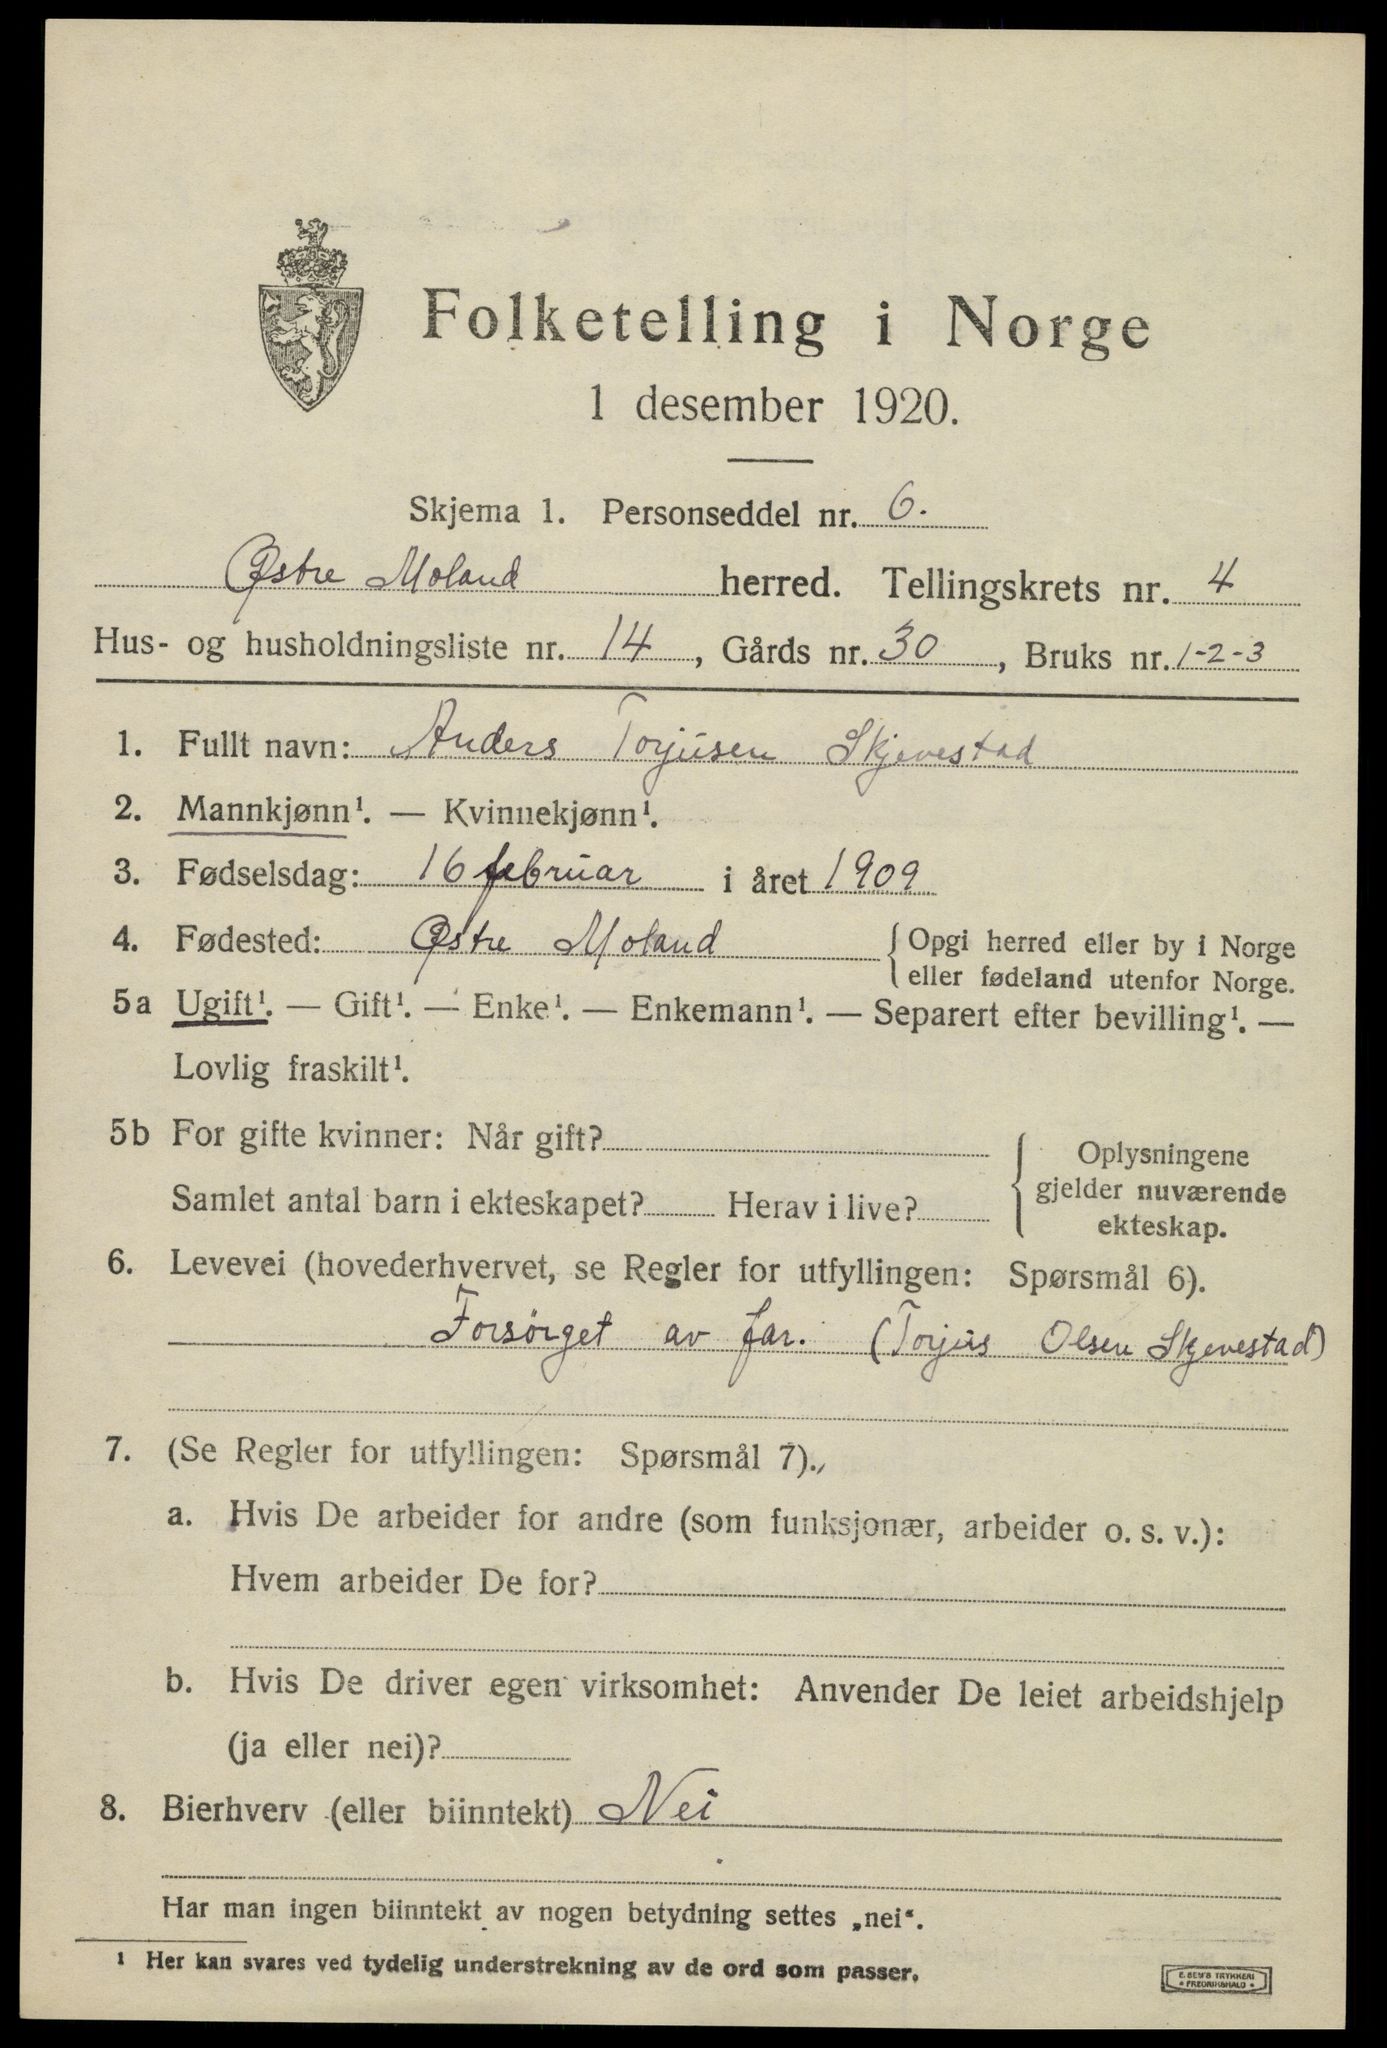 Folketelling i Norge
1 desember 1920.
Skjema 1. Personseddel nr. 6.
Østre Moland herred. Tellingskrets nr. 4
Hus- og husholdningsliste nr. 14, Gårds nr. 30, Bruks nr. 1-2-3
1. Fullt navn: Anders Torjusen Skjevestad
2. Mannkjønn¹. — Kvinnekjønn¹.
3. Fødselsdag: 16 februar i året 1909
4. Fødested: Østre Moland { Opgi herred eller by i Norge
eller fødeland utenfor Norge.
5a Ugift¹. — Gift¹. — Enke¹. — Enkemann¹. — Separert efter bevilling¹. —
Lovlig fraskilt¹.
5b For gifte kvinner: Når gift?
Samlet antal barn i ekteskapet? Herav i live?
{ Oplysningene
gjelder nuværende
ekteskap.
6. Levevei (hovederhvervet, se Regler for utfyllingen: Spørsmål 6).
Forsørget av far. (Torjus Olsen Skjevestad)
7. (Se Regler for utfyllingen: Spørsmål 7).
a. Hvis De arbeider for andre (som funksjonær, arbeider o. s. v.):
Hvem arbeider De for?
b. Hvis De driver egen virksomhet: Anvender De leiet arbeidshjelp
(ja eller nei)?
8. Bierhverv (eller biinntekt) Nei
Har man ingen biinntekt av nogen betydning settes „nei“.
¹ Her kan svares ved tydelig understrekning av de ord som passer.
E. SEM'S TRYKKERI
* FREDRIKSHALD *